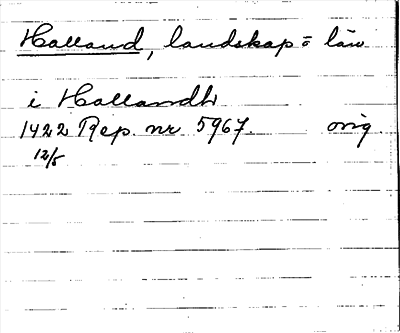 Halland, landskap = län
i Hallandh
1422 Rep. nr 5967. orig.
12/5